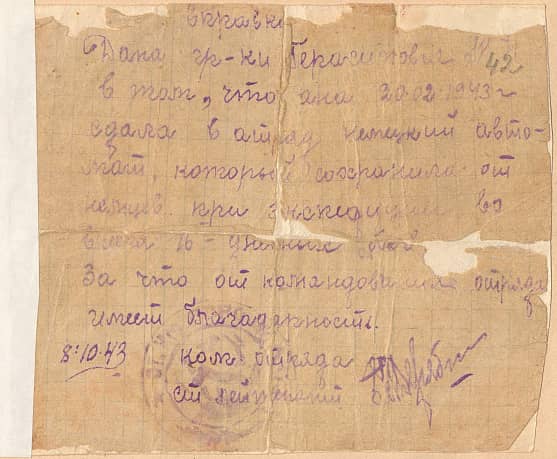 вправка
Дана гр-ки Герасимович 42
в том, что она 20.02.1943 г
сдала в отряд немецкий авто-
мат, который сохранила от
немцев при экспедиции во
время 16-дневных боёв
За что от командования отряда
имеет благадарность.
8.10.43 Ком отряда
ст лейтенант